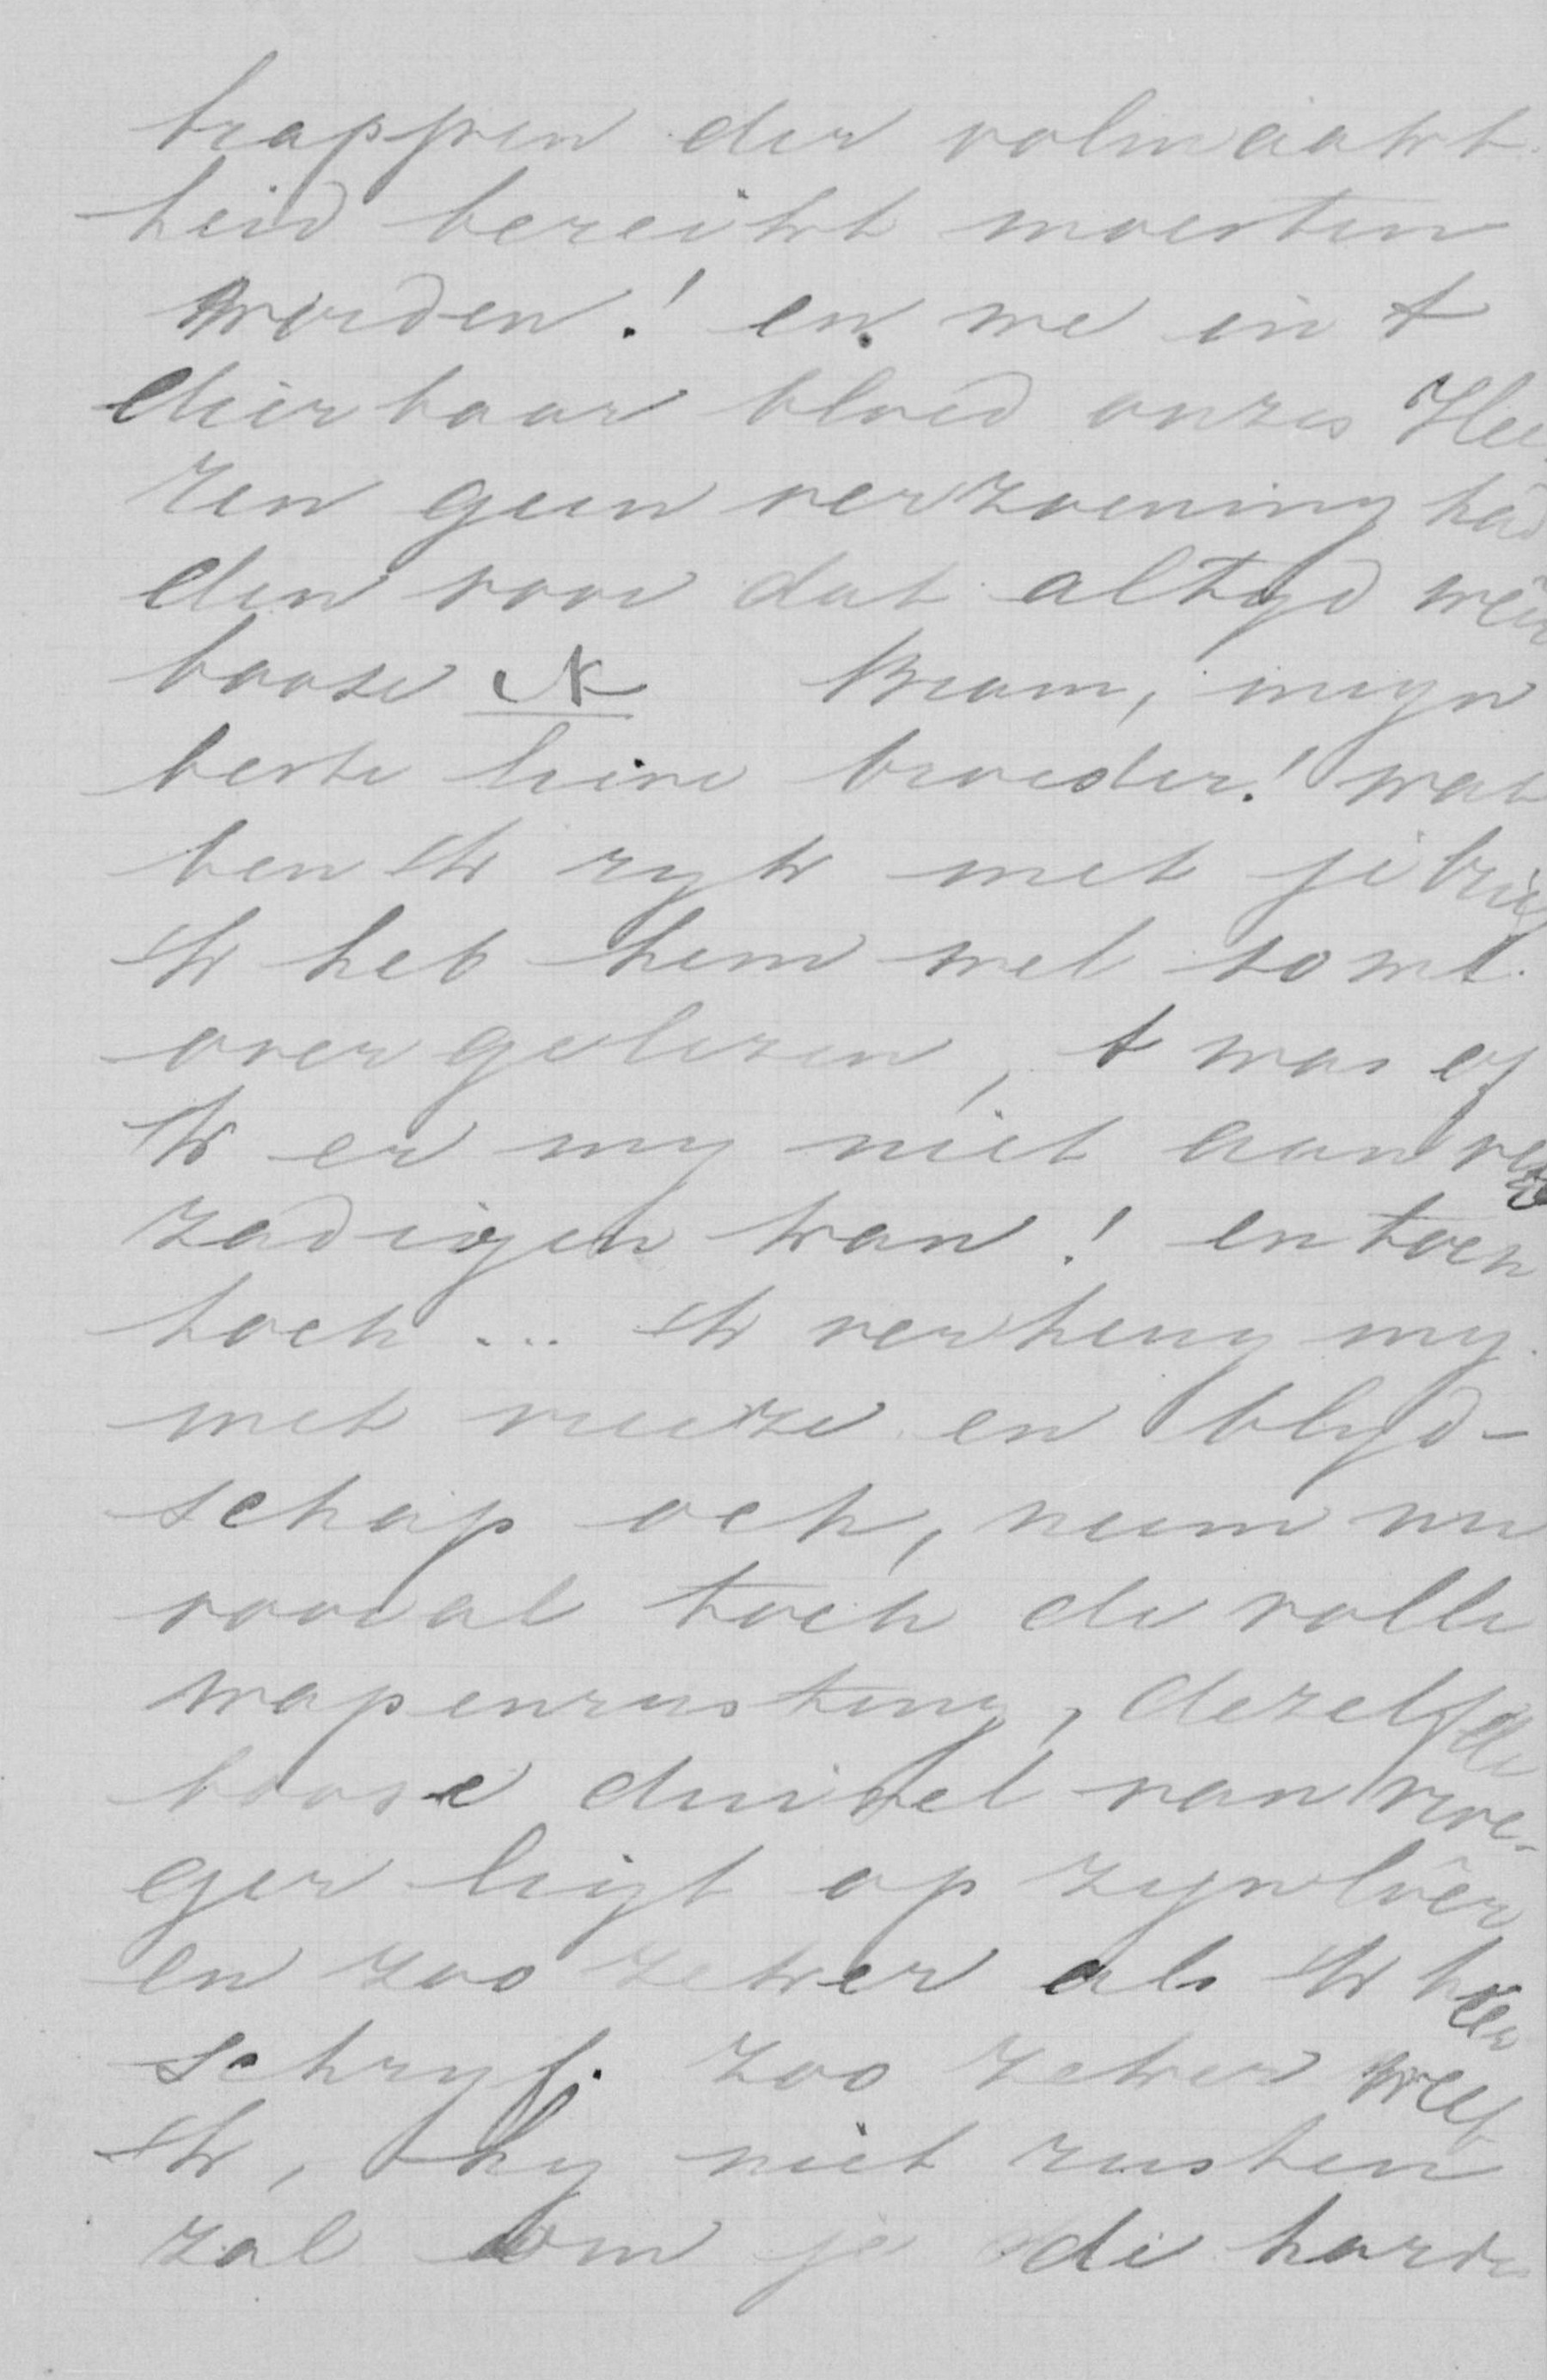 trappen der volmaakt
heid bereikt moesten
worden! en we in t
dierbaar bloed onzes Hee
ren geen verzoening had
den voor dat altyd weer
booze ik Bram, myn
beste lieve broeder! wat
ben ik ryk met je brief
ik heb hem wel 10 mt.
over gelezen, t was of
ik er my niet aan ver
zadigen kan! en toch
toch ... ik verheug my
met vreeze en blyd-
schap och, neem nu
vooral toch de volle
wapenrusting, dezelfde
booze duivel van vroe-
ger ligt op zyn loer
en zoo zeker als ik hier
schryf. zoo zeker weet
ik, hy niet rusten
zal om je de harde